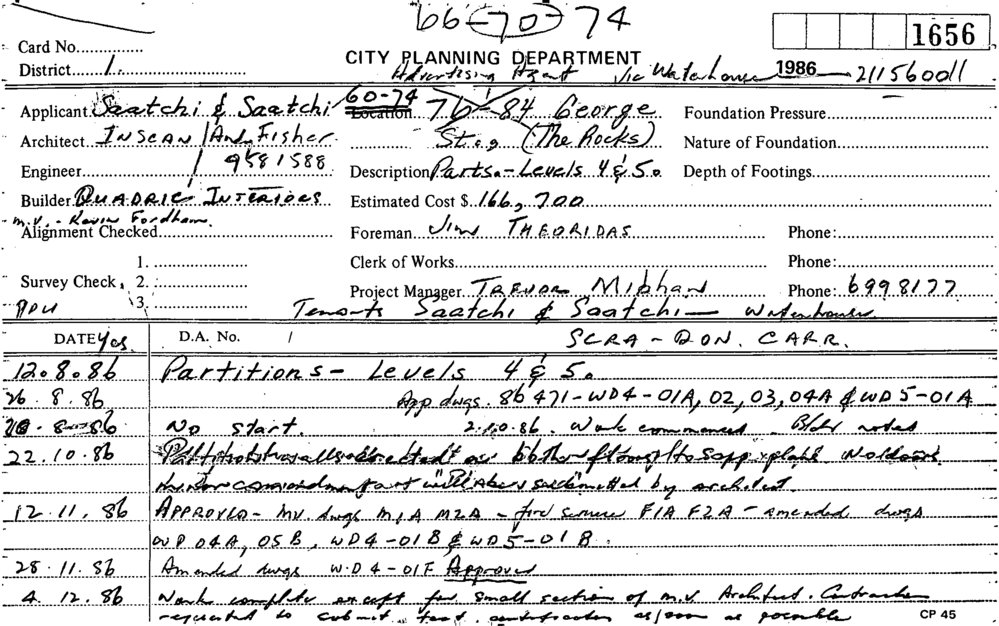 66-70-74
1656
Card No.
CITY PLANNING DEPARTMENT
District 1.
Advertising Agent Vic Waterhouse 1986 - 21156001
Applicant Saatchi & Saatchi 60-74 Location 76-84 George Foundation Pressure
Architect INSCAN / Andy Fisher St., (The Rocks) Nature of Foundation
9581588
Engineer Description Parts.-Levels 4 & 5. Depth of Footings
Builder QUADRIC INTERIORS Estimated Cost $ 166,700
m.v. - Kevin Fordham
Alignment Checked Foreman Jim THEORIDAS Phone:
1. Clerk of Works Phone:
Survey Check, 2. Project Manager TREVOR Miphan Phone: 6998177
3. Tenants Saatchi & Saatchi - Waterhouse
DATE Yes D.A. No. / SCRA - DON. CARR.
12.8.86 Partitions - Levels 4 & 5.
26.8.86 App dwgs. 86471-WD4-01A, 02, 03, 04A & WD5-01A
8.86 No start. 2.10.86. Work commenced - Bldr noted
22.10.86 by architect.
12.11.86 APPROVED - MV. dwgs M1A M2A - fire F1A F2A - amended dwgs
WD 04A, 05B, WD4-01B & WD5-01B.
28.11.86 Amended dwgs WD4-01F Approved
4.12.86 Work complete except for small section of m.v. Architect. Contractor
requested to submit test certificates as soon as possible
CP 45